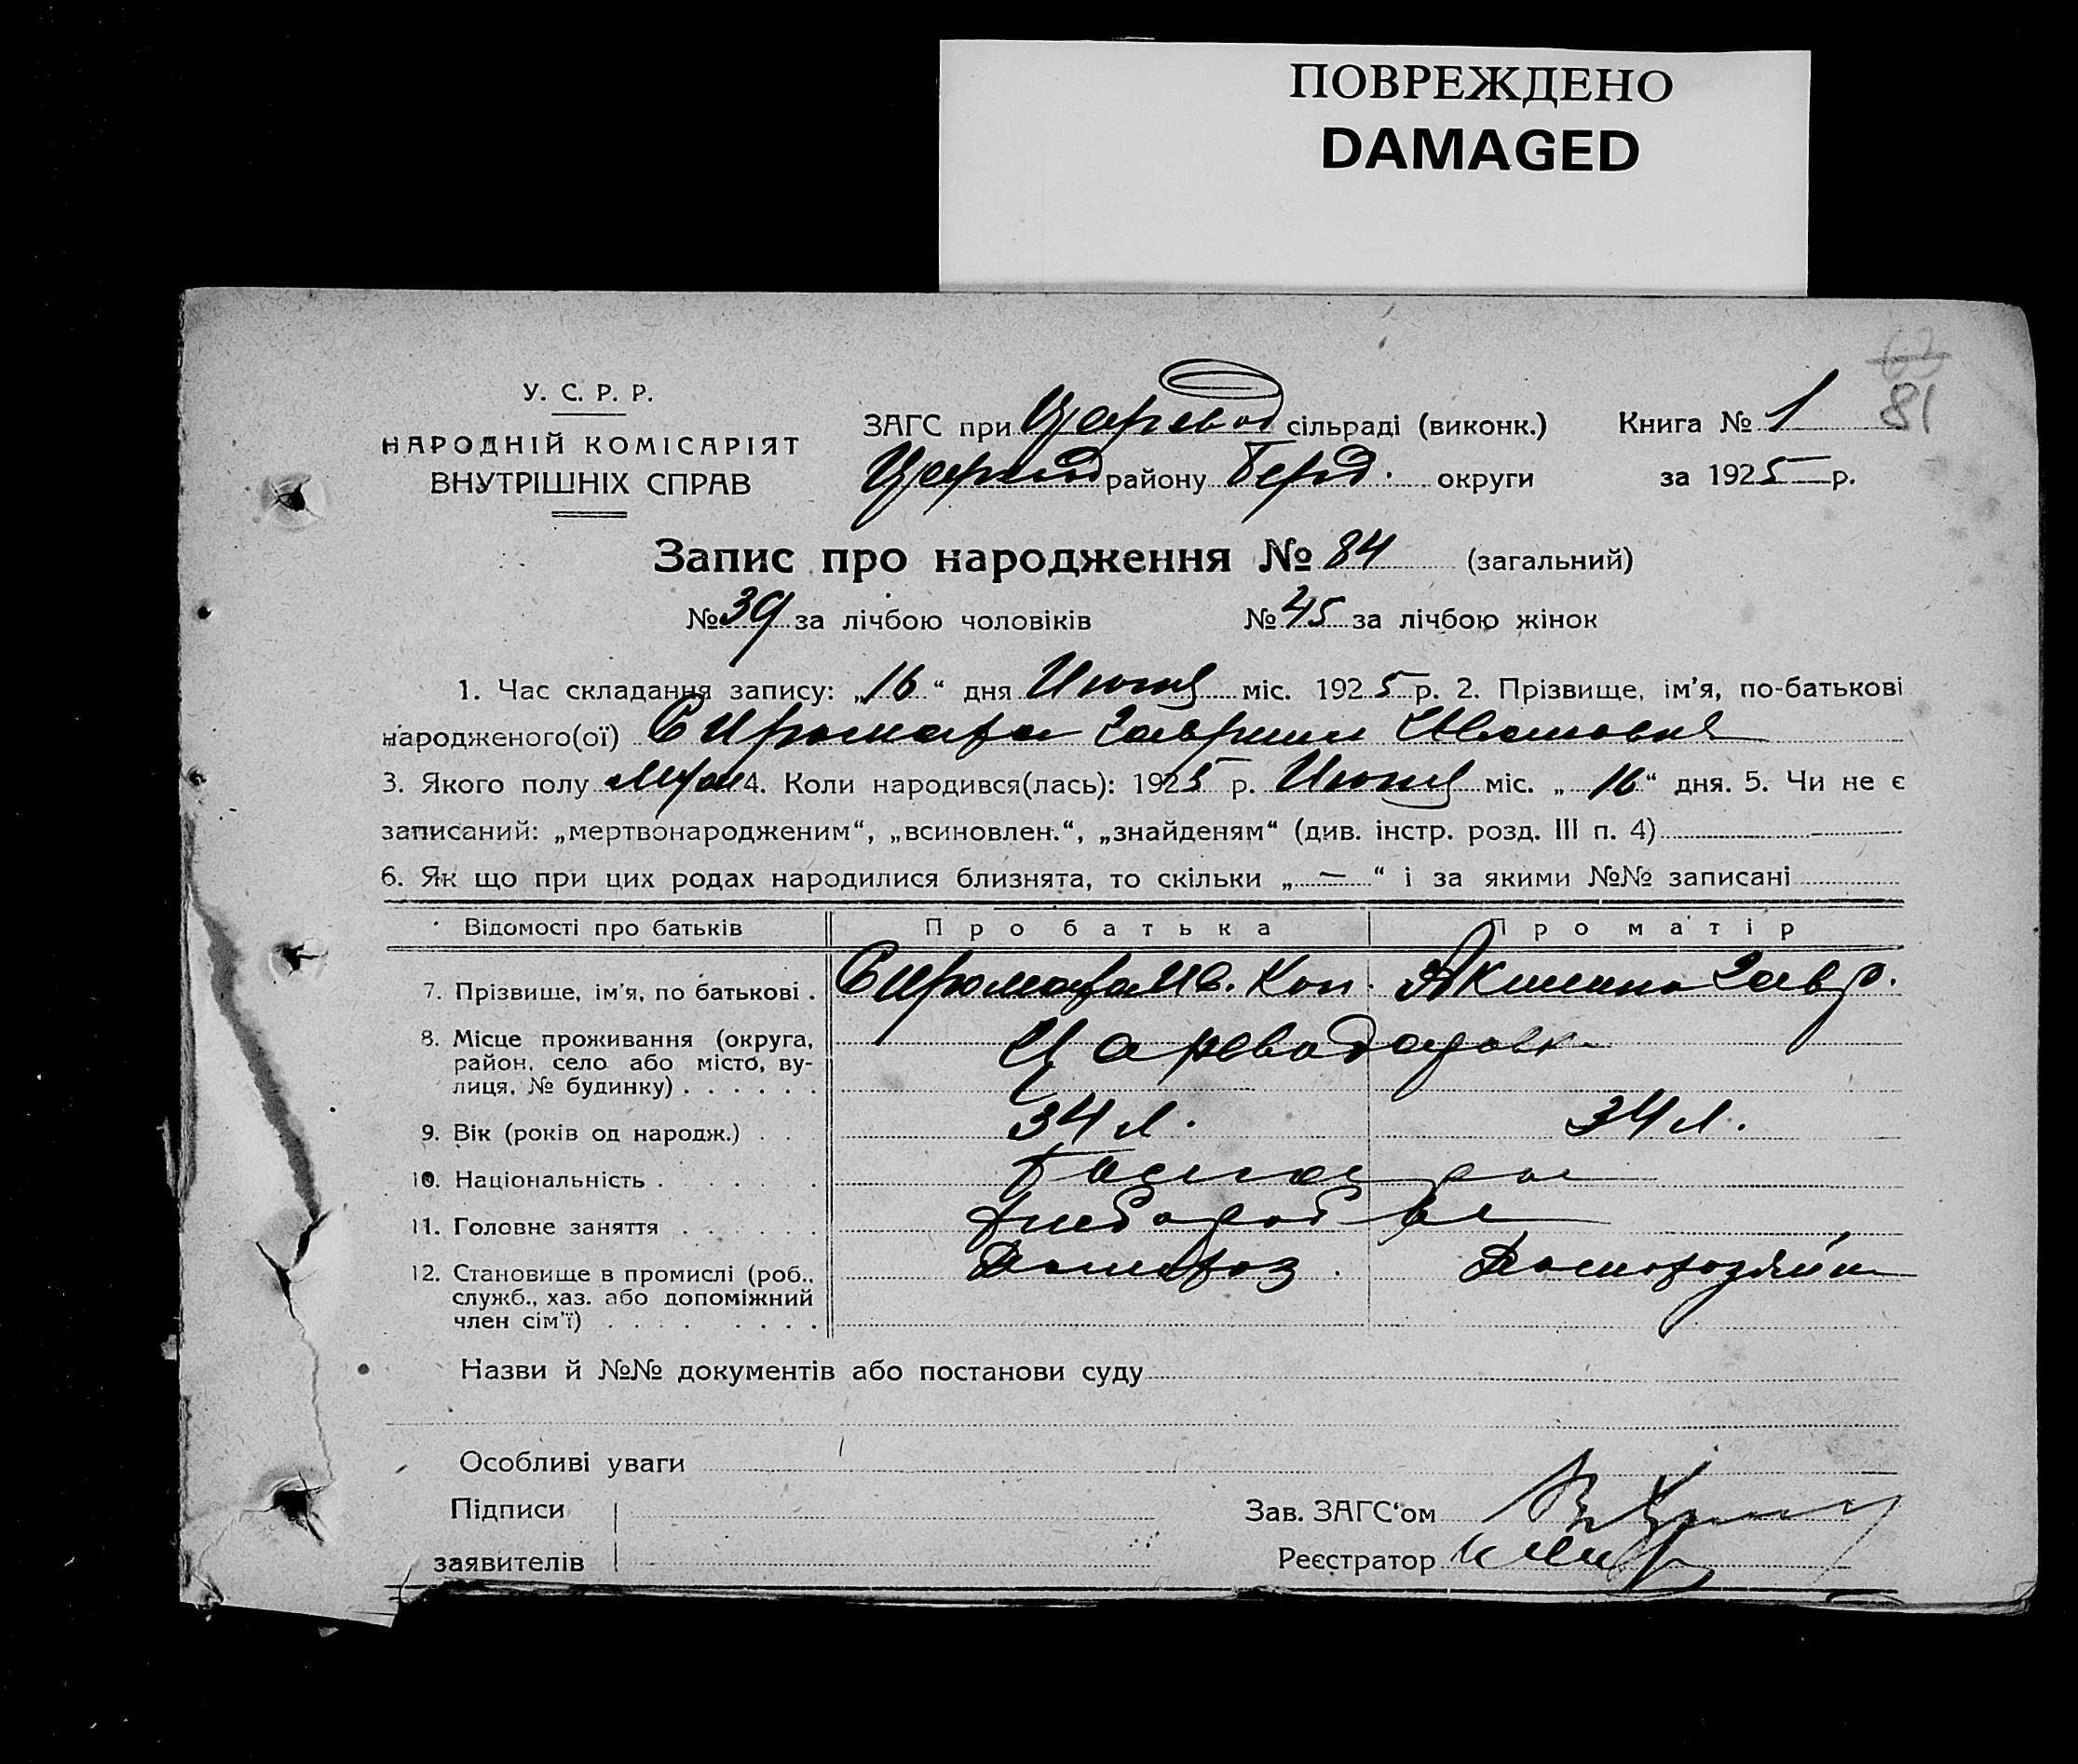 ПОВРЕЖДЕНО
DAMAGED
81
У. С. Р. Р.
НАРОДНІЙ КОМІСАРІЯТ
ВНУТРІШНІХ СПРАВ
ЗАГС при Царевод сільраді (виконк.) Книга № 1
району Берд. округи за 1925 р.
Запис про народження № 84 (загальний)
№ 39 за лічбою чоловіків № 45 за лічбою жінок
1. Час складання запису: „16“ дня міс. 1925 р. 2. Прізвище, ім'я, по-батькові
народженого(ої) Сиромаха Іванович
3. Якого полу муж 4. Коли народився(лась): 1925 р. міс. „16“ дня. 5. Чи не є
записаний: „мертвонародженим“, „всиновлен.“, „знайденям“ (див. інстр. розд. III п. 4)
6. Як що при цих родах народилися близнята, то скільки „—“ і за якими №№ записані
Відомості про батьків Про батька Про матір
7. Прізвище, ім'я, по батькові . Сиромаха Ив. Кон. Акилина Гавр.
8. Місце проживання (округа,
район, село або місто, ву-
лиця, № будинку) . . . . . .
9. Вік (років од народж.) . . 34 л. 34 л.
10. Національність . . . . . Болгары
11. Головне заняття . . . . . Хлебороб
12. Становище в промислі (роб.,
служб., хаз. або допоміжний
член сім'ї) . . . . . . . . . Домохоз. Домохозяйка
Назви й №№ документів або постанови суду
Особливі уваги
Підписи
заявителів
Зав. ЗАГС'ом
Реєстратор